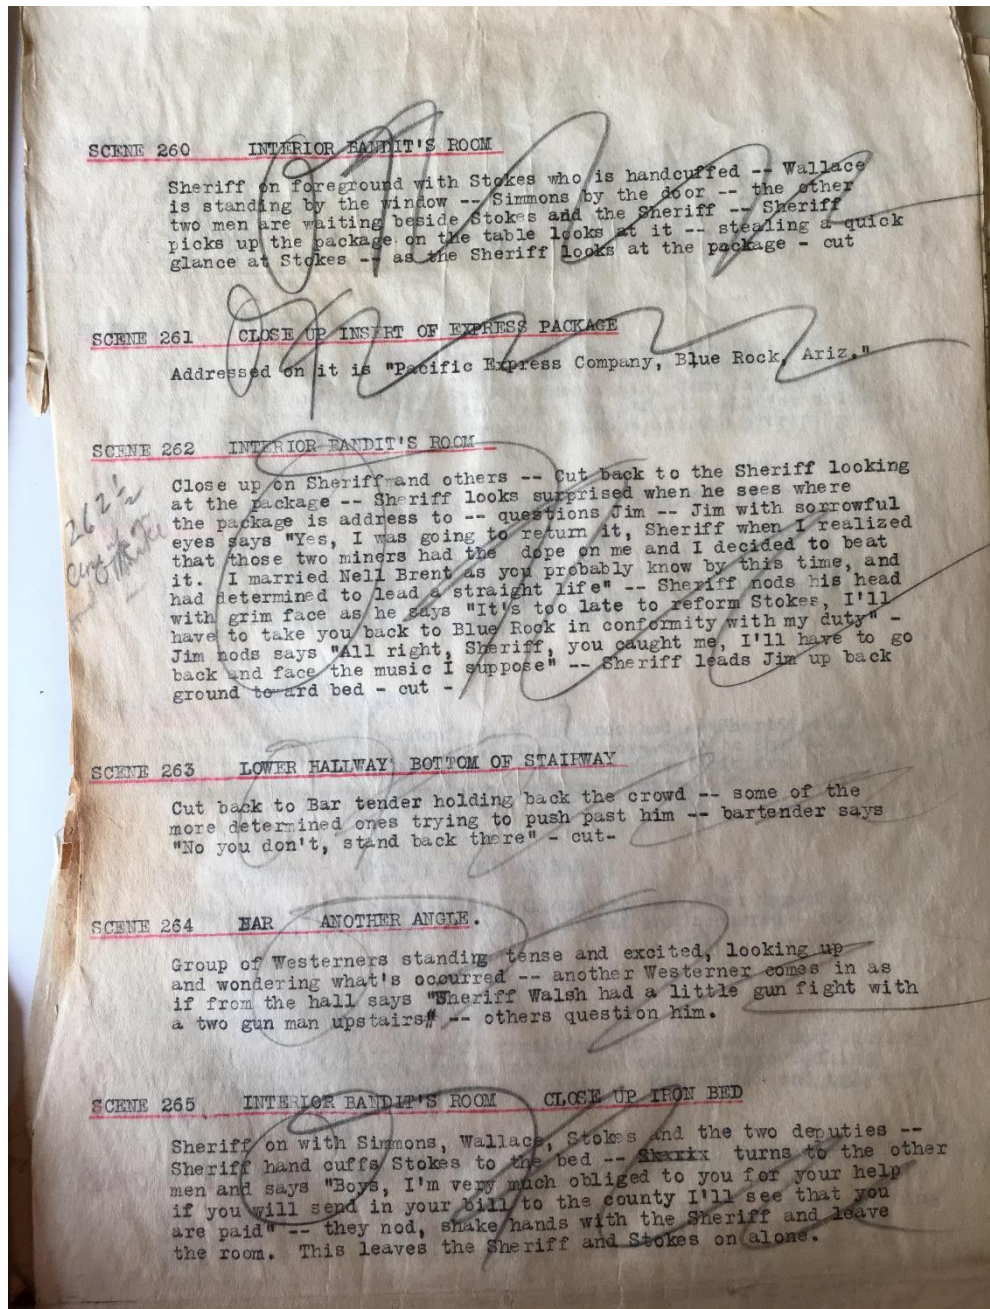 SCENE 260 INTERIOR BANDIT'S ROOM
Sheriff on foreground with Stokes who is handcuffed -- Wallace
is standing by the window -- Simmons by the door -- the other
two men are waiting beside Stokes and the Sheriff -- Sheriff
picks up the package on the table looks at it -- stealing a quick
glance at Stokes -- as the Sheriff looks at the package - cut
SCENE 261 CLOSE UP INSERT OF EXPRESS PACKAGE
Addressed on it is "Pacific Express Company, Blue Rock, Ariz."
SCENE 262 INTERIOR BANDIT'S ROOM
262½
Close up on Sheriff and others -- Cut back to the Sheriff looking
at the package -- Sheriff looks surprised when he sees where
the package is address to -- questions Jim -- Jim with sorrowful
eyes says "Yes, I was going to return it, Sheriff when I realized
that those two miners had the dope on me and I decided to beat
it. I married Nell Brent as you probably know by this time, and
had determined to lead a straight life" -- Sheriff nods his head
with grim face as he says "It's too late to reform Stokes, I'll
have to take you back to Blue Rock in conformity with my duty" -
Jim nods says "All right, Sheriff, you caught me, I'll have to go
back and face the music I suppose" -- Sheriff leads Jim up back
ground to ard bed - cut -
SCENE 263 LOWER HALLWAY BOTTOM OF STAIRWAY
Cut back to Bar tender holding back the crowd -- some of the
more determined ones trying to push past him -- bartender says
"No you don't, stand back there" - cut-
SCENE 264 BAR ANOTHER ANGLE.
Group of Westerners standing tense and excited, looking up
and wondering what's occurred -- another Westerner comes in as
if from the hall says "Sheriff Walsh had a little gun fight with
a two gun man upstairs" -- others question him.
SCENE 265 INTERIOR BANDIT'S ROOM CLOSE UP IRON BED
Sheriff on with Simmons, Wallace, Stokes and the two deputies --
Sheriff hand cuffs Stokes to the bed -- turns to the other
men and says "Boys, I'm very much obliged to you for your help
if you will send in your bill to the county I'll see that you
are paid" -- they nod, shake hands with the Sheriff and leave
the room. This leaves the Sheriff and Stokes on alone.